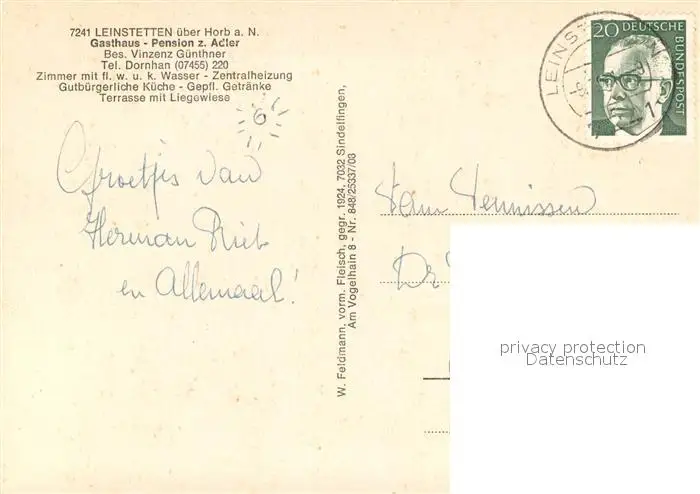 7241 LEINSTETTEN über Horb a. N.
Gasthaus - Pension z. Adler
Bes. Vinzenz Günthner
Tel. Dornhan (07455) 220
Zimmer mit fl. w. u. k. Wasser - Zentralheizung
Gutbürgerliche Küche - Gepfl. Getränke
Terrasse mit Liegewiese
Groetjes van
Herman Riet
en Allemaal!
W. Feldmann, vorm. Fleisch, gegr. 1924, 7032 Sindelfingen,
Am Vogelhain 8 - Nr. 848/25337/08
20 DEUTSCHE
BUNDESPOST
LEINS
Fam Teunissen
Dr
privacy protection
Datenschutz